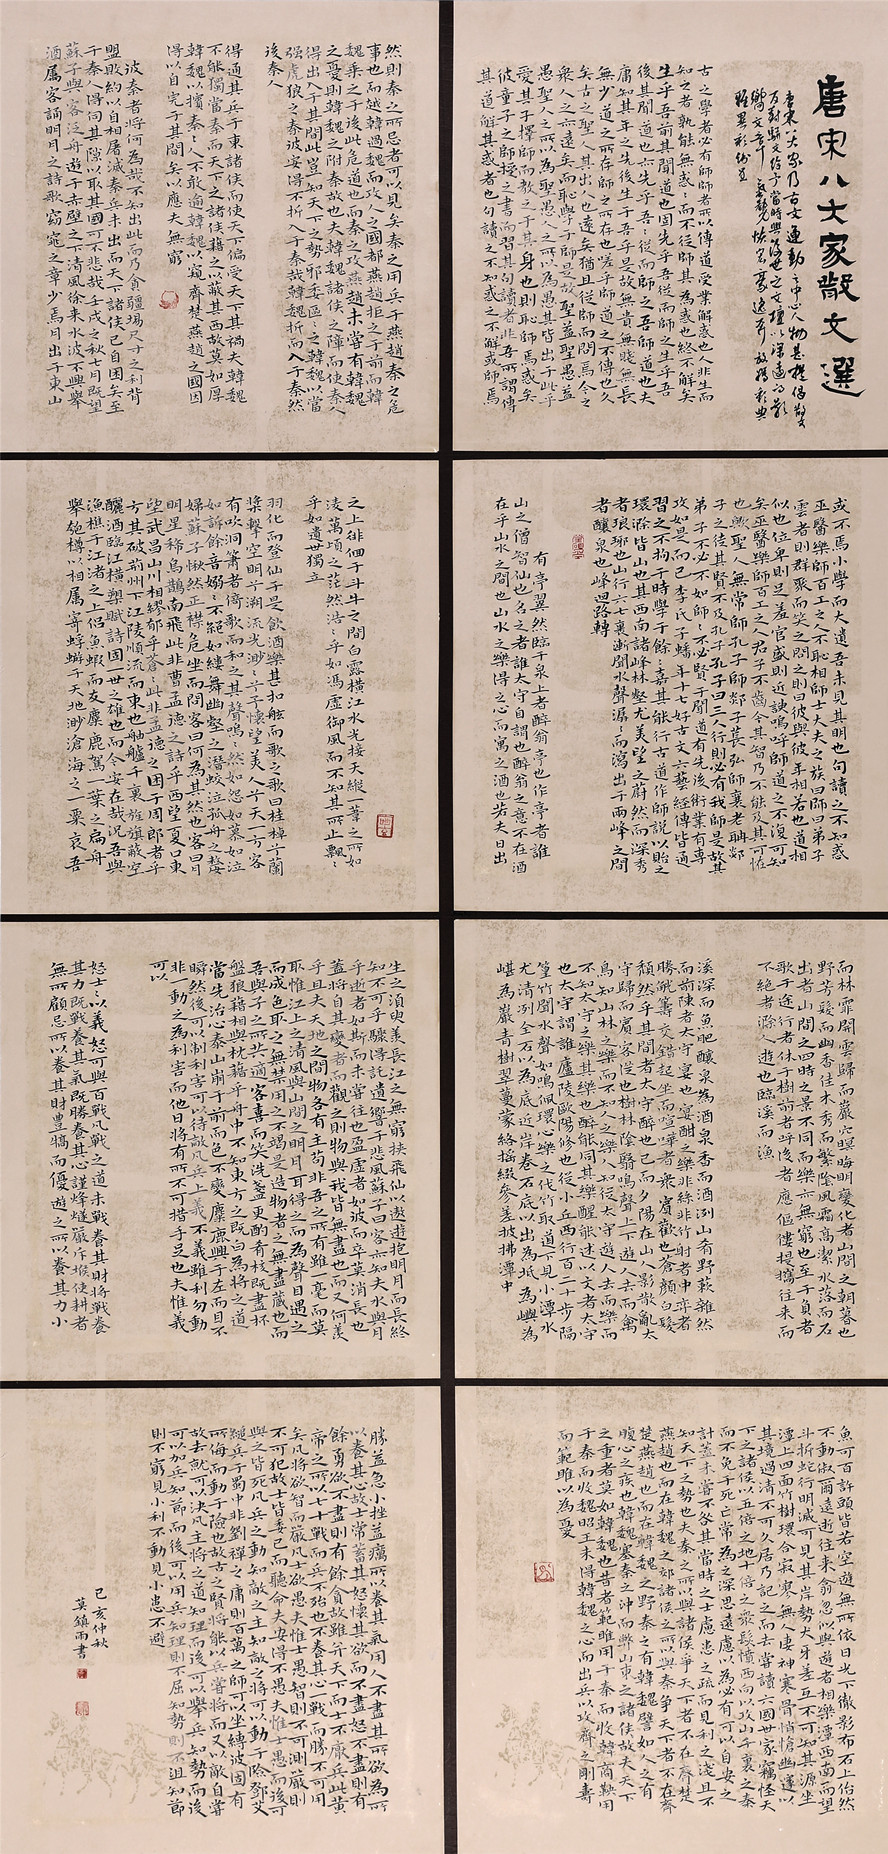 唐宋八大家散文選
唐宋八大家乃古文運動之中心人物
古之學者必有師師者所以傳道受業解惑也人非生而
知之者孰能無惑惑而不從師其為惑也終不解矣
生乎吾前其聞道也固先乎吾吾從而師之生乎吾
後其聞道也亦先乎吾吾從而師之吾師道也夫
庸知其年之先後生于吾乎是故無貴無賤無長
無少道之所存師之所存也嗟乎師道之不傳也久
矣古之聖人其出人也遠矣猶且從師而問焉今之
衆人亦遠矣而恥學于師是故聖益聖愚益
愚聖人之所以為聖愚人之所以為愚其皆出于此乎
愛其子擇師而教之于其身也則恥師焉惑矣
彼童子之師授之書而習其句讀者非吾所謂傳
其道解其惑者也句讀之不知惑之不解或師焉
或不焉小學而大遺吾未見其明也句讀之不知惑
巫醫樂師百工之人不恥相師士大夫之族曰師曰弟子
雲者則群聚而笑之問之則曰彼與彼年相若也道相
似也位卑則足羞官盛則近諛嗚呼師道之不復可知
矣巫醫樂師百工之人君子不齒今其智乃不能及其可怪
也歟聖人無常師孔子師郯子萇弘師襄老聃郯
子之徒其賢不及孔子孔子曰三人行則必有我師是故其
弟子不必不如師師不必賢于聞道有先後術業有專
攻如是而已李氏子蟠年十七好古文六藝經傳皆通
習之不拘于時學于餘餘嘉其能行古道作師說以貽之
環滁皆山也其西南諸峰林壑尤美望之蔚然而深秀
者琅琊也山行六七裏漸聞水聲潺潺而瀉出于兩峰之間
者釀泉也峰迴路轉
有亭翼然臨于泉上者醉翁亭也作亭者誰
山之僧智仙也名之者誰太守自謂也醉翁之意不在酒
在乎山水之間也山水之樂得之心而寓之酒也若夫日出
而林霏開雲歸而巖穴暝晦明變化者山間之朝暮也
野芳發而幽香佳木秀而繁陰風霜高潔水落而石
出者山間之四時之景不同而樂亦無窮也至于負者
歌于途行者休于樹前者呼後者應傴僂提攜往來而
不絕者滁人遊也臨溪而漁
溪深而魚肥釀泉為酒泉香而酒洌山肴野蔌雜然
而前陳者太守宴也宴酣之樂非絲非竹射者中弈者
勝觥籌交錯起坐而喧嘩者衆賓歡也蒼顏白髮
頹然乎其間者太守醉也已而夕陽在山人影散亂太
守歸而賓客從也樹林陰翳鳴聲上下遊人去而禽
鳥知山林之樂而不知人之樂人知從太守遊而樂而
不知太守之樂其樂也醉能同其樂醒能述以文者太守
也太守謂誰廬陵歐陽修也從小丘西行百二十步隔
篁竹聞水聲如鳴佩環心樂之伐竹取道下見小潭水
尤清洌全石以為底近岸卷石底以出為坻為嶼為
嵁為巖青樹翠蔓蒙絡搖綴參差披拂潭中
魚可百許頭皆若空遊無所依日光下徹影布石上佁然
不動俶爾遠逝往來翕忽似與遊者相樂潭西南而望
斗折蛇行明滅可見其岸勢犬牙差互不可知其源坐
潭上四面竹樹環合寂寥無人凄神寒骨悄愴幽邃以
其境過清不可久居乃記之而去嘗讀六國世家竊怪天
下之諸侯以五倍之地十倍之衆發憤西向以攻山千裏之秦
而不免于死亡常為之深思遠慮以為必有可以自安之
計蓋未嘗不咎其當時之士慮患之疏而見利之淺且不
知天下之勢也夫秦之所以與諸侯爭天下者不在齊楚
燕趙也而在韓魏之郊諸侯之所以與秦爭天下者不在齊
楚燕趙也而在韓魏之野秦之有韓魏譬如人之有
腹心之疾也韓魏塞秦之沖而弊山東之諸侯故夫天下
之重者莫如韓魏也昔者範雎用于秦而收韓商鞅用
于秦而收魏昭王未得韓魏之心而出兵以攻齊之剛壽
而範雎以為憂
然則秦之所忌者可以見矣秦之用兵于燕趙秦之危
事也而越韓過魏而攻人之國都燕趙拒之于前而韓
魏乘之于後此危道也而秦之攻燕趙未嘗有韓魏
之憂則韓魏之附秦故也夫韓魏諸侯之障而使秦人
得出入于其間此豈知天下之勢邪委區區之韓魏以當
强虎狼之秦彼安得不折入于秦哉韓魏折而入于秦然
後秦人
得通其兵于東諸侯而使天下偏受天下其禍夫韓魏
不能獨當秦而天下之諸侯藉之以蔽其西故莫如厚
韓魏以擯秦秦人不敢逾韓魏以窺齊楚燕趙之國因
得以自完于其間矣以應夫無窮
彼秦者將何為哉不知出此而乃貪疆場尺寸之利背
盟敗約以自相屠滅秦兵未出而天下諸侯已自困矣至
于秦人得伺其隙以取其國可不悲哉壬戌之秋七月既望
蘇子與客泛舟遊于赤壁之下清風徐來水波不興舉
酒屬客誦明月之詩歌窈窕之章少焉月出于東山
之上徘徊于斗牛之間白露橫江水光接天縱一葦之所如
淩萬頃之茫然浩浩乎如馮虛御風而不知其所止飄飄
乎如遺世獨立
羽化而登仙于是飲酒樂甚扣舷而歌之歌曰桂棹兮蘭
槳擊空明兮溯流光渺渺兮于懷望美人兮天一方客
有吹洞簫者倚歌而和之其聲嗚嗚然如怨如慕如泣
如訴餘音嫋嫋不絕如縷舞幽壑之潛蛟泣孤舟之嫠
婦蘇子愀然正襟危坐而問客曰何為其然也客曰月
明星稀烏鵲南飛此非曹孟德之詩乎西望夏口東
望武昌山川相繆郁乎蒼蒼此非孟德之困于周郎者乎
方其破荊州下江陵順流而東也舳艫千裏旌旗蔽空
釃酒臨江橫槊賦詩固一世之雄也而今安在哉況吾與
漁樵于江渚之上侶魚蝦而友麋鹿駕一葉之扁舟
舉匏樽以相屬寄蜉蝣于天地渺滄海之一粟哀吾
生之須臾羨長江之無窮挾飛仙以遨遊抱明月而長終
知不可乎驟得託遺響于悲風蘇子曰客亦知夫水與月
乎逝者如斯而未嘗往也盈虛者如彼而卒莫消長也
蓋將自其變者而觀之則物與我皆無盡也而又何羨
乎且夫天地之間物各有主苟非吾之所有雖一毫而莫
取惟江上之清風與山間之明月耳得之而為聲目遇之
而成色取之無禁用之不竭是造物者之無盡藏也而
吾與子之所共適客喜而笑洗盞更酌肴核既盡杯
盤狼藉相與枕藉乎舟中不知東方之既白為將之道
當先治心泰山崩于前而色不變麋鹿興于左而目不
瞬然後可以制利害可以待敵凡兵上義不義雖利勿動
非一動之為利害而他日將有所不可措手足也夫惟義
可以
怒士士以義怒可與百戰凡戰之道未戰養其財將戰養
其力既戰養其氣既勝養其心謹烽燧嚴斥堠使耕者
無所顧忌所以養其財豐犒而優遊之所以養其力小
勝益急小挫益厲所以養其氣用人不盡其所欲為所
以養其心故士常蓄其怒懷其欲而不盡怒不盡則有
餘勇欲不盡則有餘貪故雖并天下而士不厭兵此黃
帝之所以七十戰而兵不殆也不養其心一戰而勝不可用
矣凡將欲智而嚴凡士欲愚夫惟士愚智則不可測嚴則
不可犯故士皆委己而聽命夫安得不愚夫惟士愚而後可
與之皆死凡兵之動知敵之主知敵之將可以動于險鄧艾
縋兵于蜀中非劉禪之庸則百萬之師可以坐縛彼固有
所侮而動于險也故古之賢將能以兵嘗將而又以敵自嘗
故去就可以決凡主將之道知理而後可以舉兵知勢而後
可以加兵知節而後可以用兵知理則不屈知勢則不沮知節
則不窮見小利不動見小患不避
己亥仲秋
莫鎮雨書